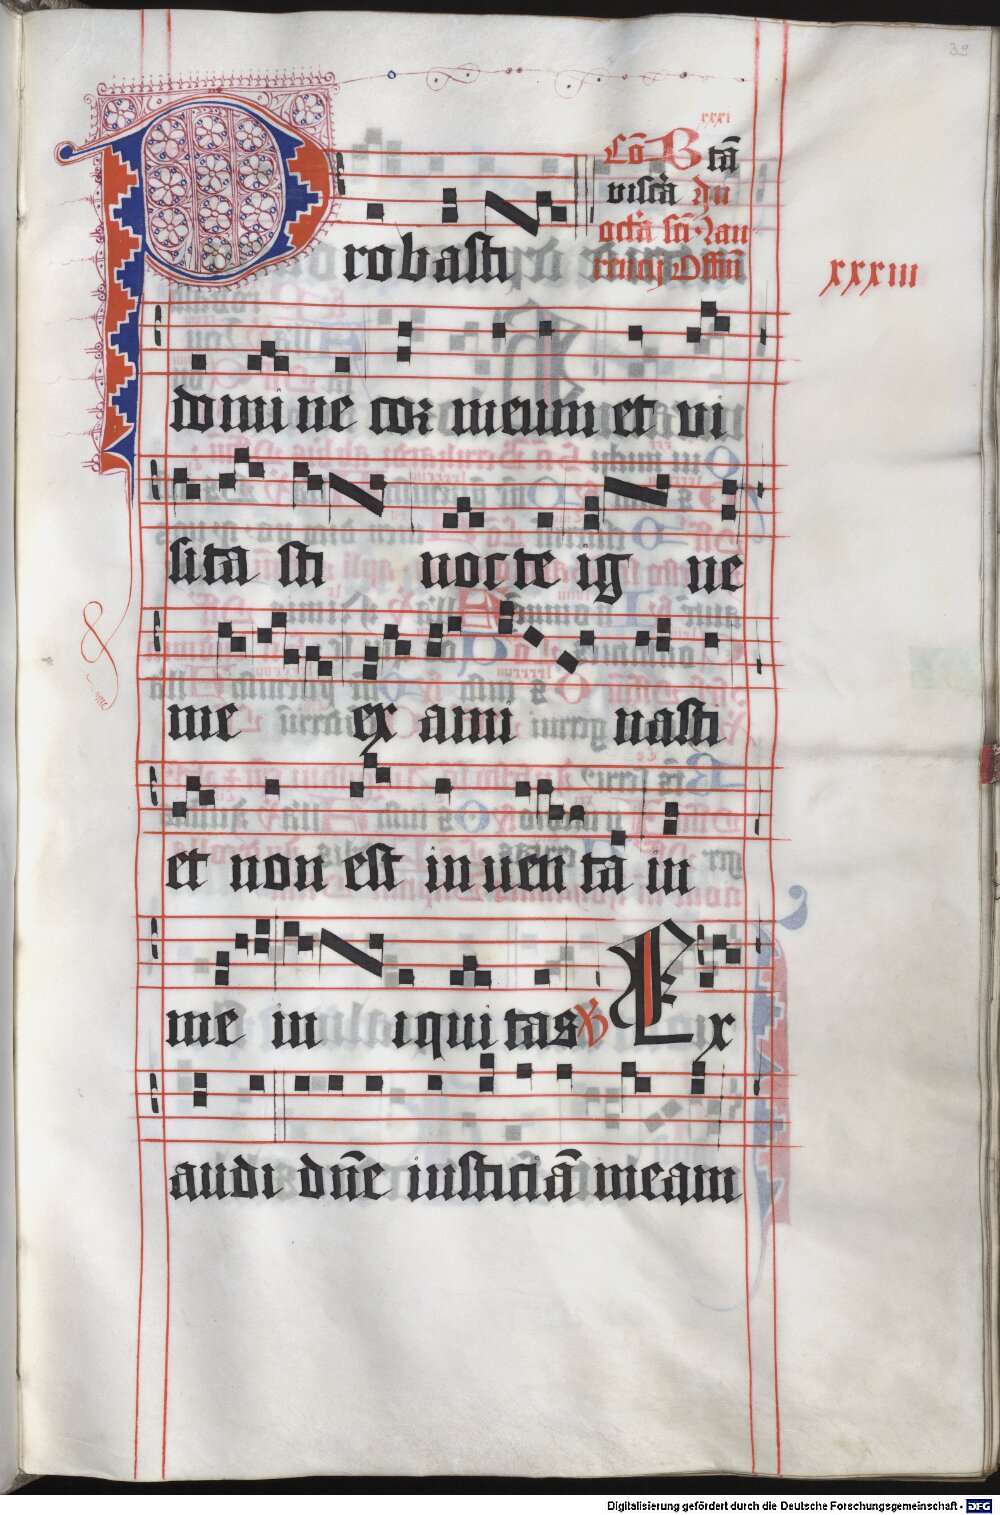 39
xxxi
Cō B tā
viscā du
octā sci Lau
rencij Offm
Probasti
xxxiii
domine cor meum et vi
sita sti nocte ig ne
me ex ami nasti
et non est inuen ta in
me in iqui tas ꝟ Ex
audi dn̄e iusticiā meam
Digitalisierung gefördert durch die Deutsche Forschungsgemeinschaft - DFG